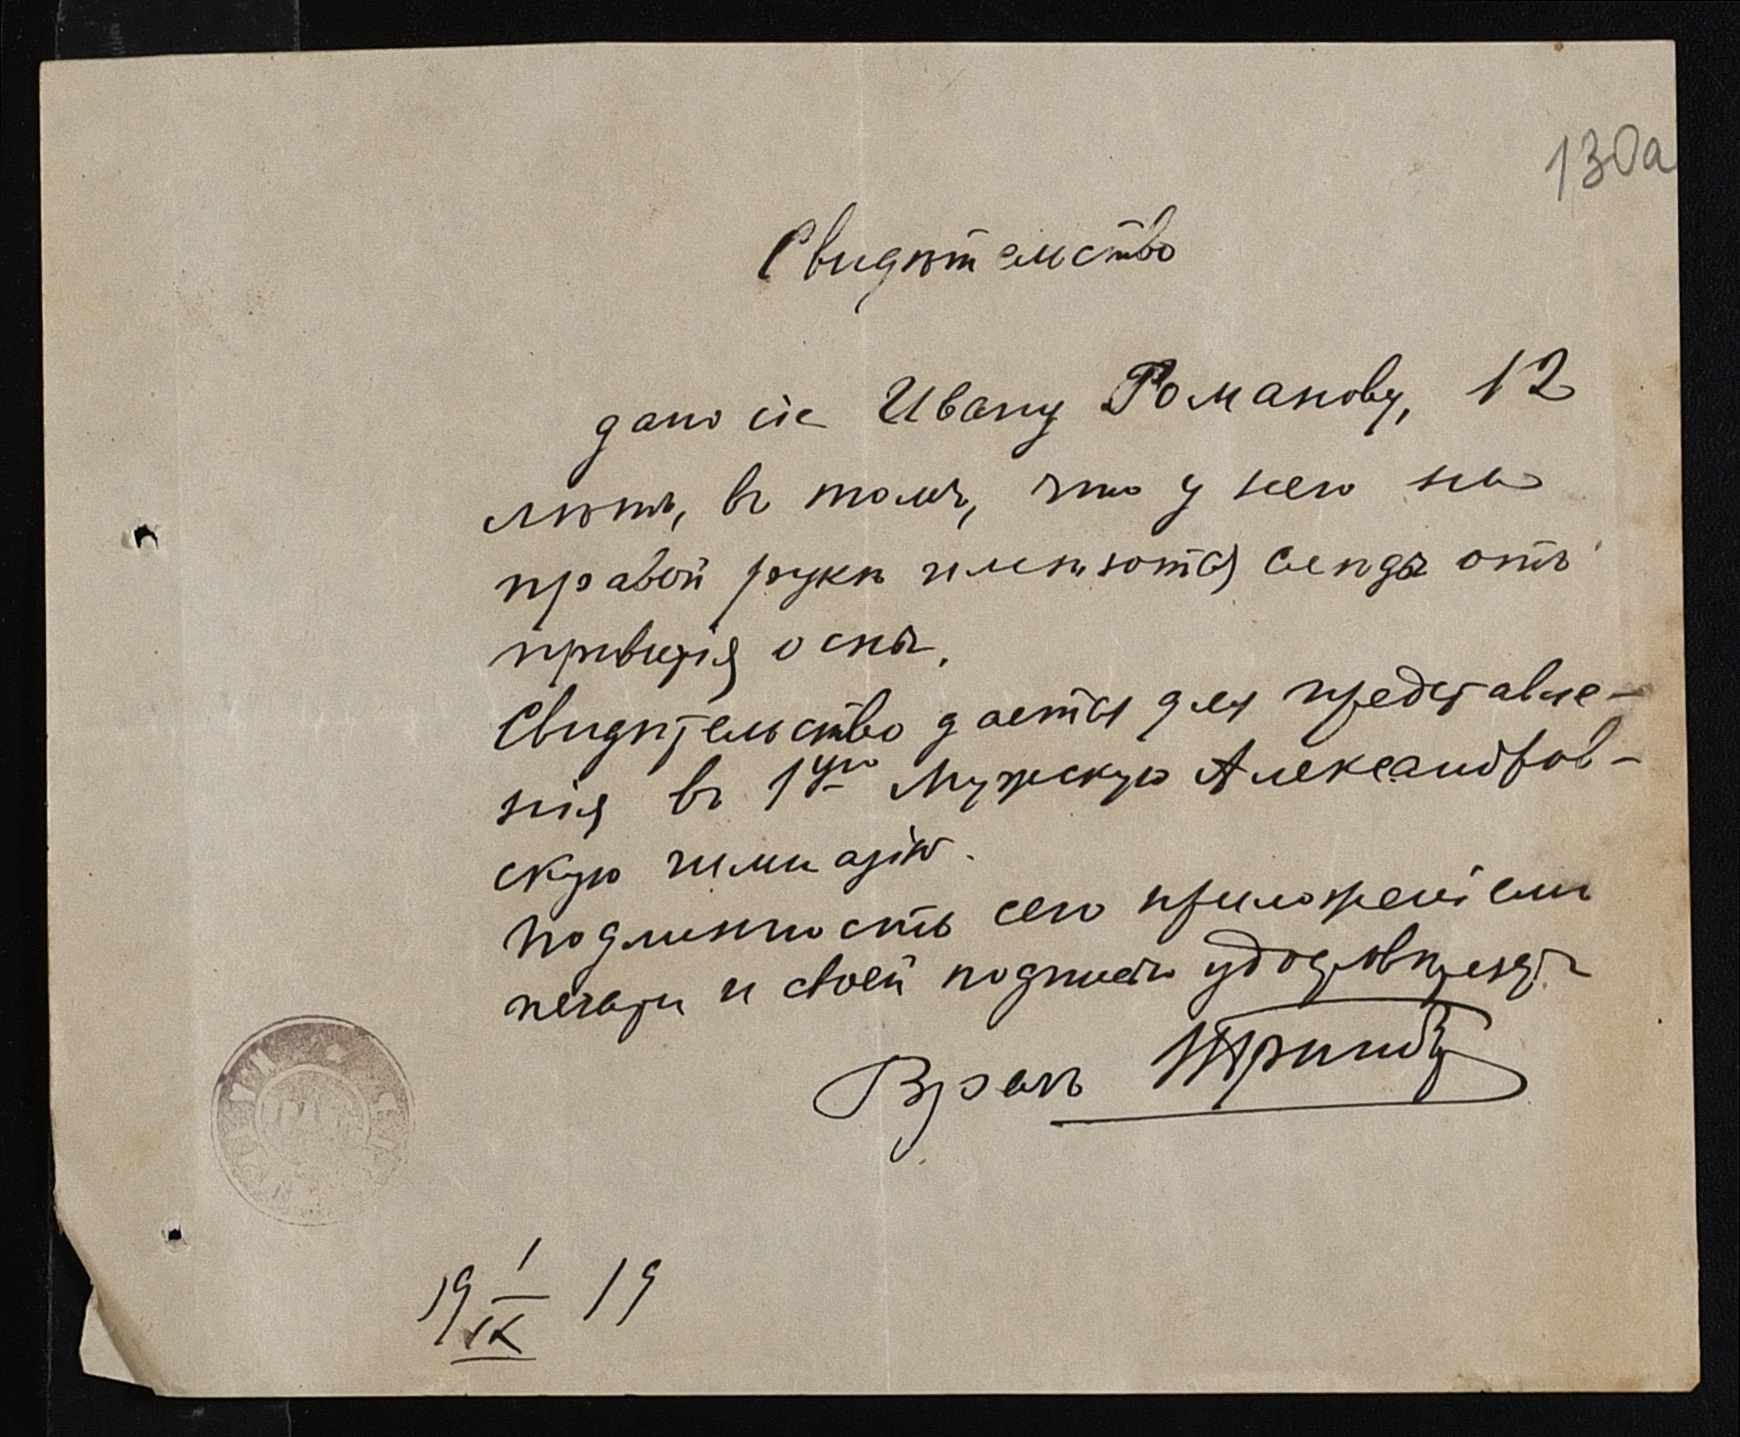 130а
Свидѣтельство
дано сіе Ивану Романову, 12
лѣтъ, въ томъ, что у него на
правой рукѣ имѣются слѣды отъ
привитія оспы.
Свидѣтельство дается для представле-
нія въ 1ую Мужскую Александров-
скую гимназію.
Подлинность сего приложеніемъ
печати и своей подписью удостовѣряю
Врачъ
19 I/IX 19